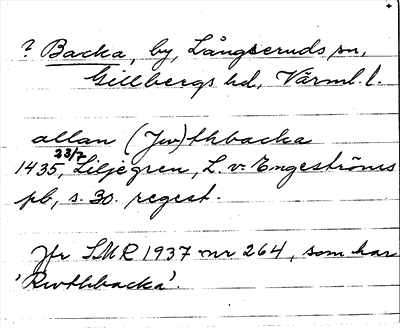 ? Backa, by, Långseruds sn,
Gillbergs hd, Värml. l.
allan (Jw)thbacka
1435 23/7, Liljegren, L. v. Engeströms
pb, s. 30. regest.
Jfr SMR 1937 nr 264, som har
'Rwthbacka'.